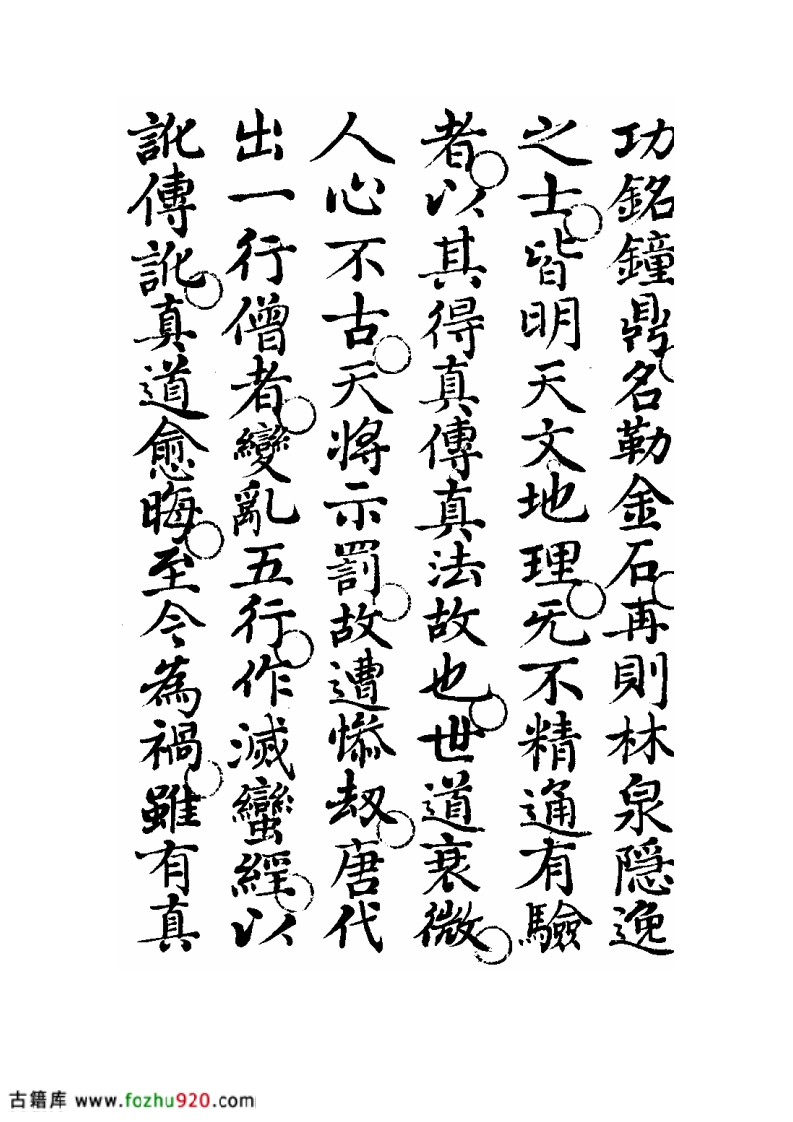 功銘鐘鼎名勒金石再則林泉隱逸
之士皆明天文地理旡不精通有驗
者以其得真傳真法故也世道衰微
人心不古天將示罰故遭慘刼唐代
出一行僧者變亂五行作滅蠻經以
訛傳訛真道愈晦至今為禍雖有真
古籍库 www.fozhu920.com